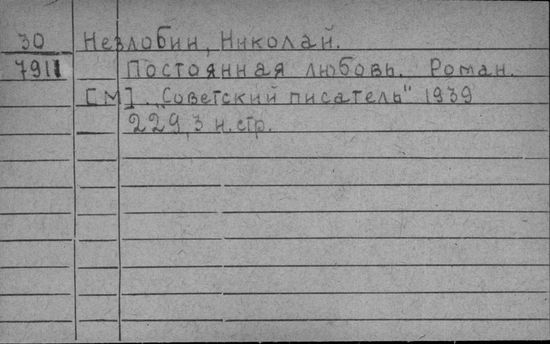 30 Незлобин, Николай.
7911 Постоянная любовь. Роман.
[М]. „Советский писатель" 1939
229, 3 н. стр.